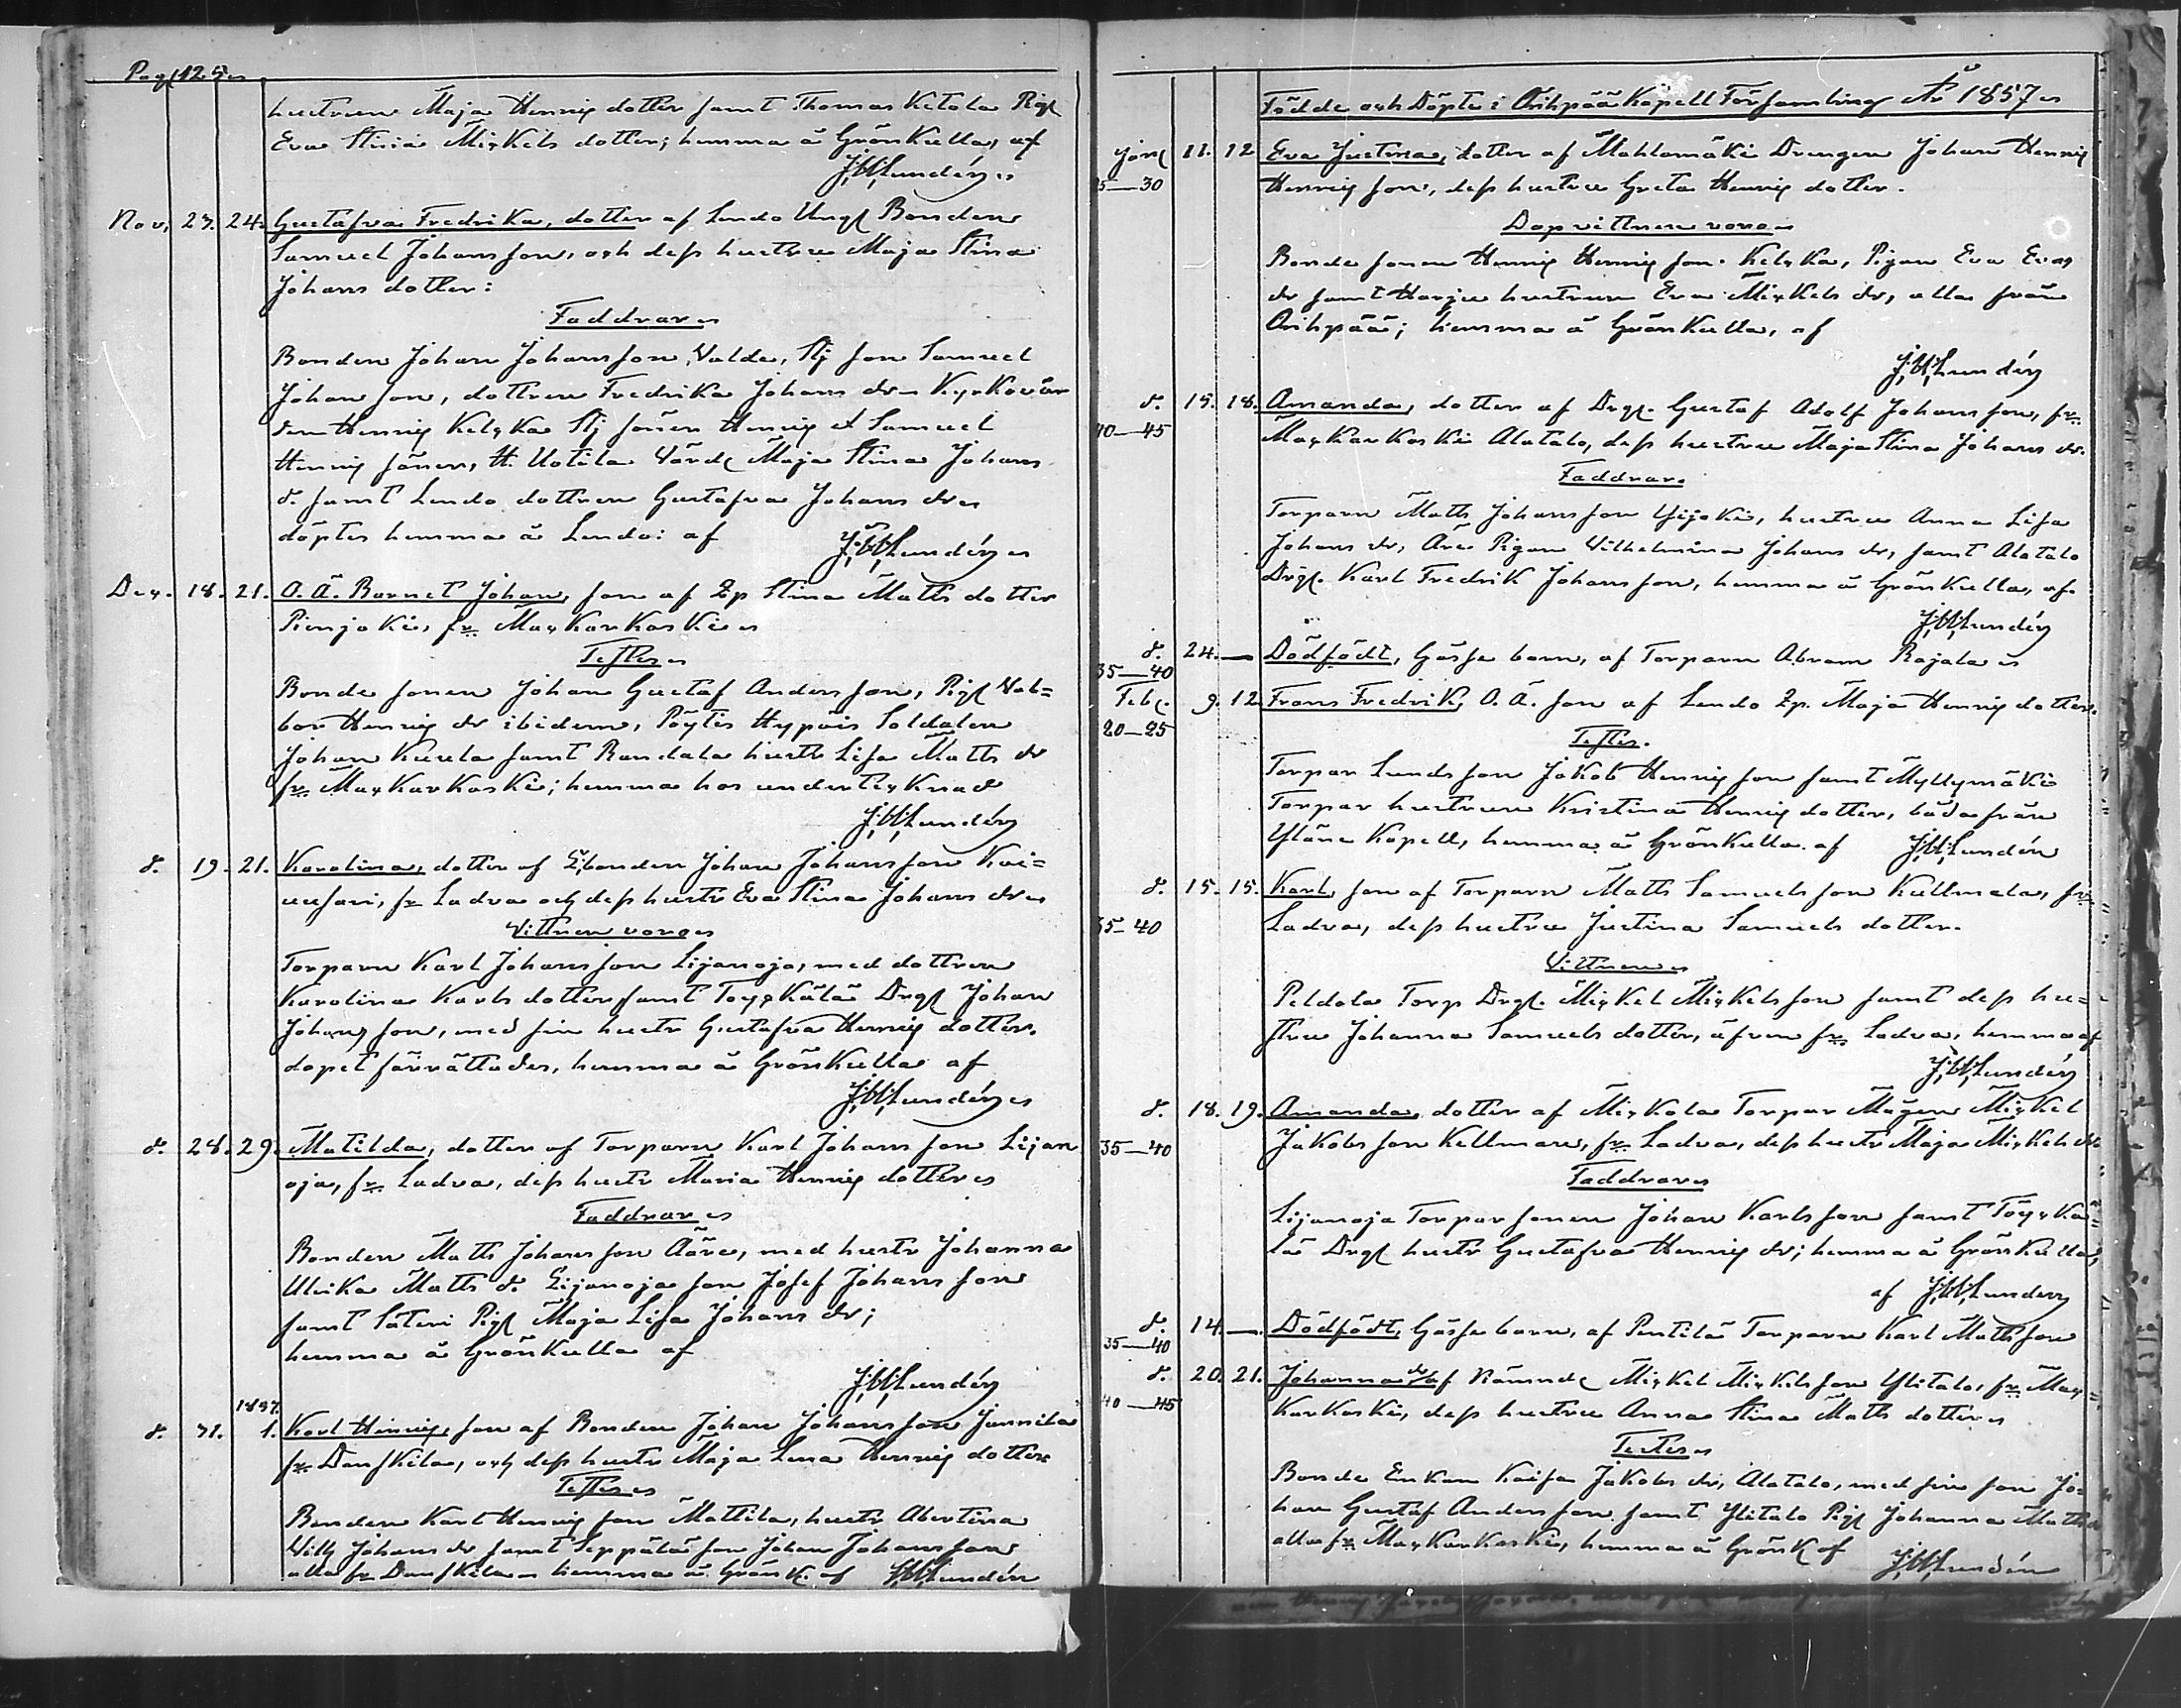 Pag. 125
hustrun Maja Henrig dotter samt Thomas Ketola Pig.
Eva Stina Mickels dotter; hemma å Grönkulla, af
J. W. Lundén
Nov. 23. 24. Gustafva Fredrika, dotter af Lendo Ung. Bonden
Samuel Johansson, och dess hustru Maja Stina
Johans dotter:
Faddrar
Bonden Johan Johansson Valde, Stj son Samuel
Johansson, dottren Fredrika Johans dr Kyrkovär
den Henrig Kelkka Stj sönen Henrig et Samuel
Henrig söner, H. Uotila Värd. Maja Stina Johans
d. samt Lendo dottren Gustafva Johans dr
döptes hemma å Lendo: af J. W. Lundén
Dec. 18. 21. O. Ä. Barnet Johan, son af Lp Stina Matts dotter
Pienjoki, fr. Mackarkoski
Testes
Bonde sonen Johan Gustaf Andersson, Pig. Val=
bor Henrig dr ibidem, Pöytis Hypöis Soldaten
Johan Kuula samt Randala hustr Lisa Matts dr
fr. Mackarkoski; hemma hos undertecknad
J. W. Lundén
d. 19. 21. Karolina, dotter af bonden Johan Johansson Kai=
uusari, fr. Ladva och dess hustr Eva Stina Johans dr
Vittnen voro
Torparn Karl Johansson Lijanoja, med dottren
Karolina Karls dotter samt Töyckälä Drg. Johan
Johansson, med sin hustr Gustafva Henrig dotter.
dopet förrättades, hemma å Grönkulla af
J. W. Lundén
d. 28. 29. Matilda, dotter af Torparn Karl Johansson Lijan
oja, fr. Ladva, dess hustr Maria Henrig dotter
Faddrar
Bonden Matts Johansson Ääre, med hustr Johanna
Ulrika Matts d. Lijanoja son Josef Johansson
samt Säteri Pig. Maja Lisa Johans dr;
hemma å Grönkulla af
J. W. Lundén
1857.
d. 31. 1. Karl Henrig, son af Bonden Johan Johansson Junnila
fr. Danskila, och dess hustr Maja Lena Henrig dotter
Testes
Bonden Karl Henrig son Mattila, hustr Abertina
Wilh. Johans dr samt Seppälä son Johan Johansson
alla fr. Danskila hemma å Grönk. af J. W. Lundén
Födde och Döpte i Orihpää Kapell Församling År 1857
Jan. 11. 12 Eva Justina, dotter af Mahlamäki Drengen Johan Henrig
25—30 Henrig son, dess hustru Greta Henrig dotter.
Dopvittnen voro
Bonde sonen Henrig Henrig son Kelkka, Pigan Eva Evas
dr samt Harju hustrun Eva Mickels dr, alla från
Orihpää; hemma å Grönkulla, af
J. W. Lundén
d. 15. 18. Amanda, dotter af Drg. Gustaf Adolf Johansson, fr.
40—45 Mackarkoski Alatalo, dess hustru Maja Stina Johans dr.
Faddrar.
Torparn Matts Johansson Yijoki, hustru Anna Lisa
Johans dr, Äre Pigan Wilhelmina Johans dr, samt Alatalo
Drg. Karl Fredrik Johansson, hemma å Grönkulla, af
J. W. Lundén
d. 24. — Dödfödt, Gosse barn, af Torparn Abram Rajala
35—40
Feb. 9. 12 Frans Fredrik, O. Ä. son af Lendo Lp. Maja Henrig dotter.
20—25 Testes.
Torpar Lunds son Jakob Henrig son samt Myllymäki
Torpar hustrun Kristina Henrig dotter, båda från
Yläne Kapell, hemma å Grönkulla af J. W. Lundén
d. 15. 15. Karl, son af Torparn Matts Samuelsson Kullmala, fr.
35—40 Ladva, dess hustru Justina Samuels dotter.
Vittnen
Peldola Torp Drg. Mickel Mickelsson samt dess hu=
stru Johanna Samuels dotter, äfven fr. Ladva; hemma af
J. W. Lundén
d. 18. 19. Amanda, dotter af Mickola Torpar Mågen Mickel
35—40 Jakobsson Kellman, fr. Ladva, dess hustr Maja Mickels dr
Faddrar
Lijanoja Torpar sonen Johan Karlsson samt Töyckä=
lä Drg. hustr Gustafva Henrig dr; hemma å Grönkulla,
af J. W. Lundén
d. 14. — Dödfödt, Gosse barn, af Pentilä Torparn Karl Mattsson
35—40
d. 20. 21. Johanna dr af Nämnd. Mickel Mickelsson Ylitalo, fr. Mac=
40—45 karkoski, dess hustru Anna Stina Matts dotter
Testes
Bonde Enkan Kaisa Jakobs dr, Alatalo, med sin son Jo=
han Gustaf Andersson samt Ylitalo Pig. Johanna Matts d
alla fr. Mackarkoski, hemma å Grönk. af J. W. Lundén